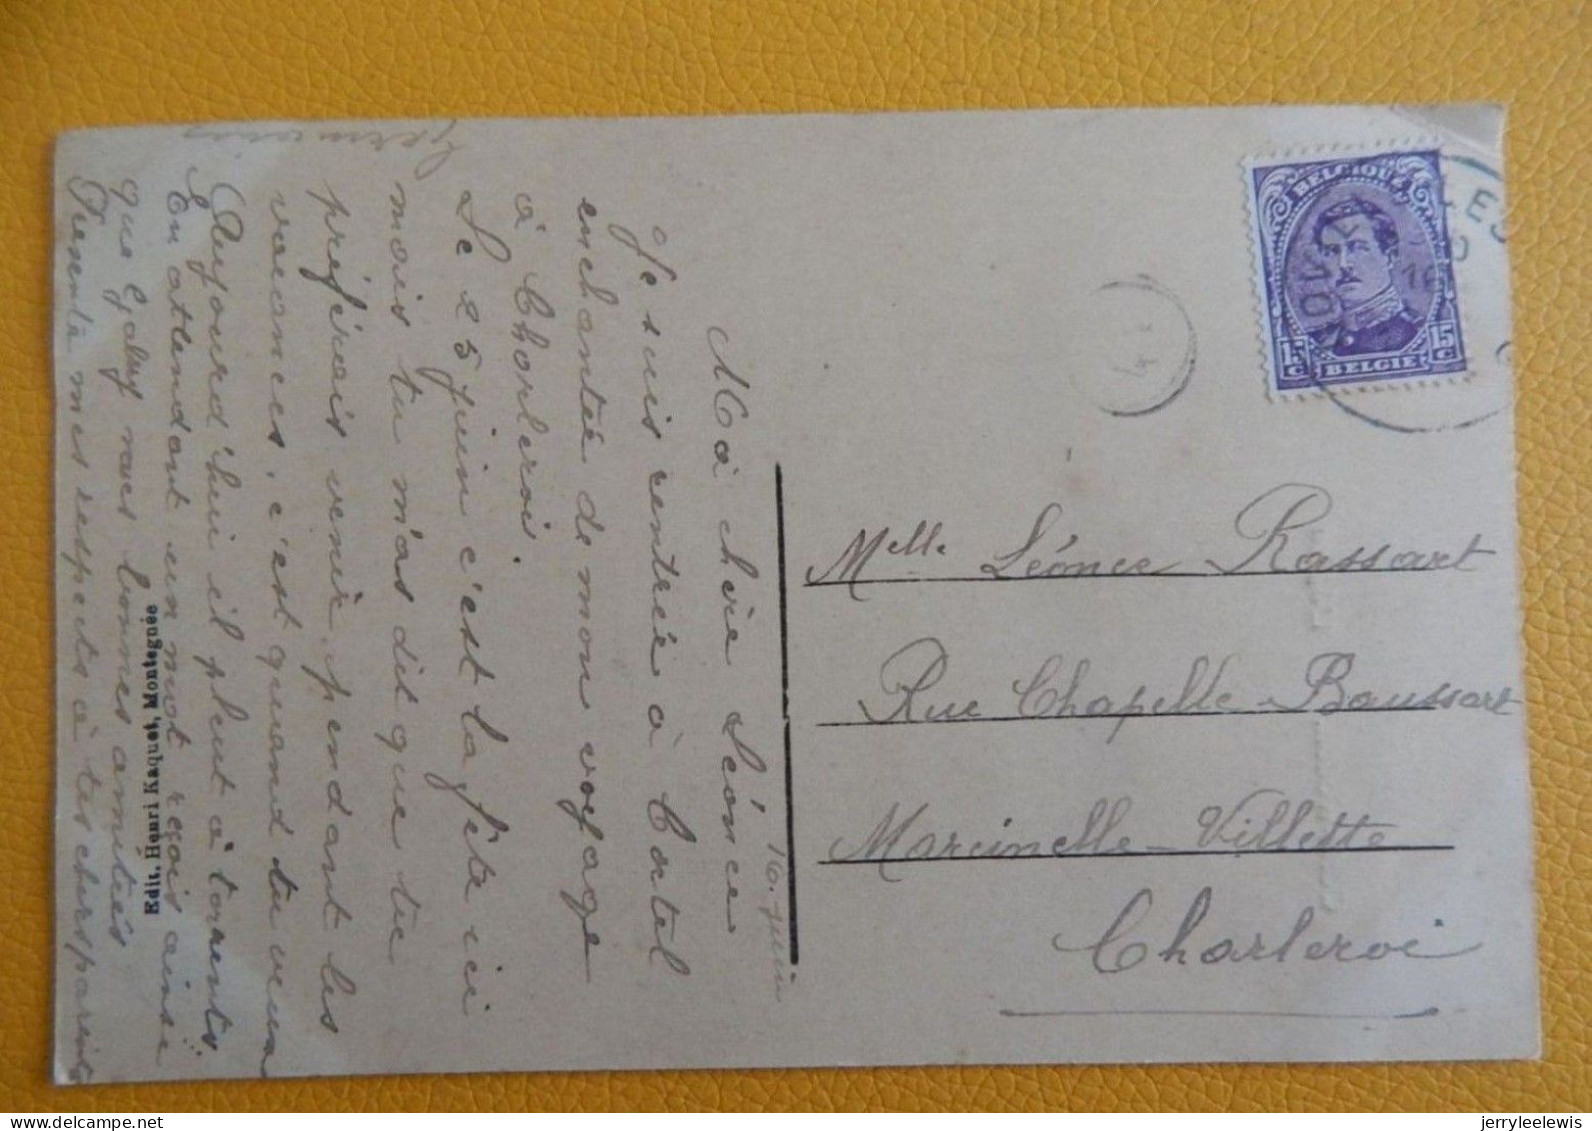 16. juin
Ma chère Léonce
Je suis rentrée à Catel
enchantée de mon voyage
à Charleroi.
Le 25 juin c'est la fête ici
mais tu m'as dit que tu
préférais venir pendant les
vacances, c'est quand tu veux
Aujourd'hui il pleut à torents.
En attendant un mot reçois ainsi
que Gaby mes bonnes amitiés
Présente mes respects à tes chers parents
Germaine
Edit. Henri Kaquet, Montegnée
BELGIQUE
15 c
15 c
BELGIE
Melle Léonce Rassart
Rue Chapelle-Baussart
Marcinelle-Villette
Charleroi
jerryleelewis